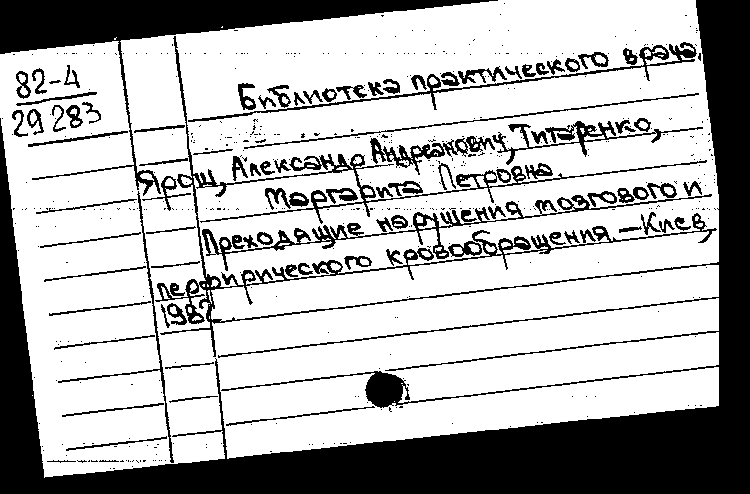 82-4
29 283
Библиотека практического врача.
Ярош, Александр Андреянович, Титаренко,
Маргарита Петровна.
Преходящие нарушения мозгового и
перфирического кровообращения. – Киев,
1982.